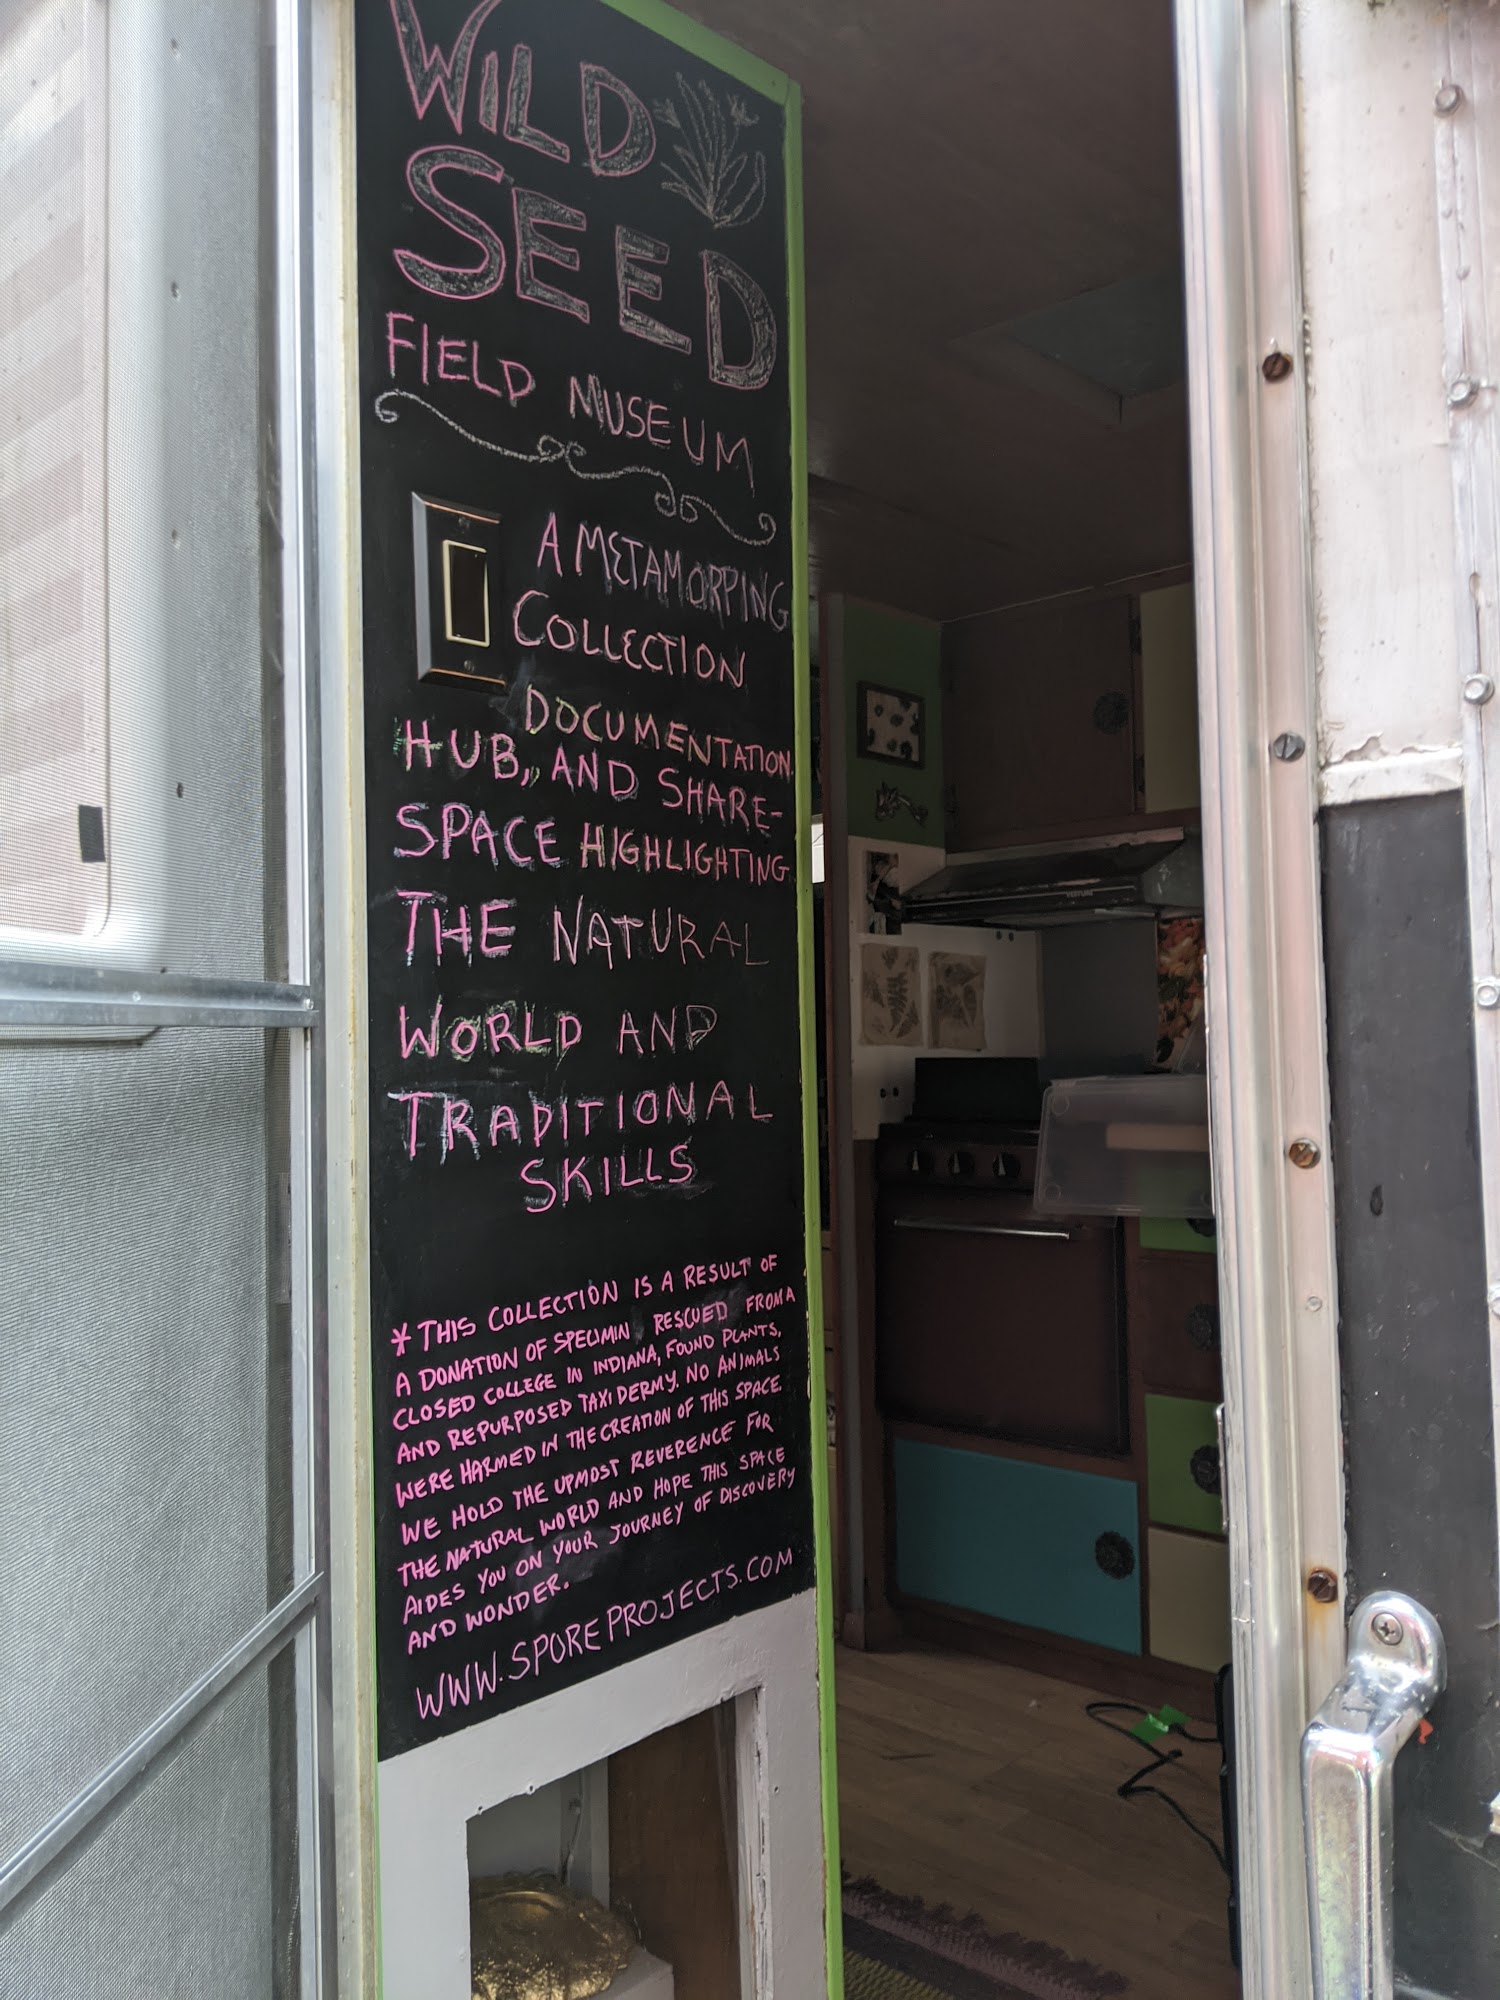 WILD
SEED
FIELD MUSEUM
A METAMORPING
COLLECTION
DOCUMENTATION
HUB,, AND SHARE-
SPACE HIGHLIGHTING
THE NATURAL
WORLD AND
TRADITIONAL
SKILLS
* THIS COLLECTION IS A RESULT OF
A DONATION OF SPECIMIN RESCUED FROM A
CLOSED COLLEGE IN INDIANA, FOUND PLANTS,
AND REPURPOSED TAXIDERMY. NO ANIMALS
WERE HARMED IN THE CREATION OF THIS SPACE.
WE HOLD THE UPMOST REVERENCE FOR
THE NATURAL WORLD AND HOPE THIS SPACE
AIDES YOU ON YOUR JOURNEY OF DISCOVERY
AND WONDER.
WWW.SPOREPROJECTS.COM